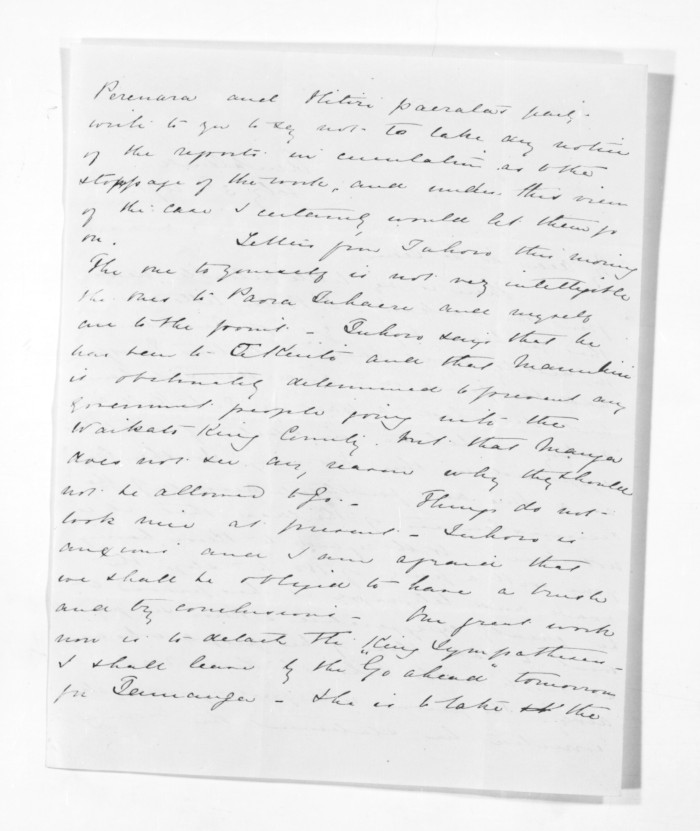 Perenara and Hitiri Paerata's party
write to you to say not to take any notice
of the reports in circulation as to the
stoppage of the work, and under this view
of the case I certainly would let them go
on. Letters from Tuhoro this morning
The one to yourself is not very intelligible
the ones to Paora Tuhaere and myself
are to the point - Tuhoro says that he
has been to Te Kuiti and that Manuhiri
is obstinately determined to prevent any
government people going into the
Waikato King Country but that Manga
does not see any reason why they should
not be allowed to go. - Things do not
look nice at present - Tuhoro is
anxious and I am afraid that
we shall be obliged to have a brush
and try conclusions - Our great work
now is to detach the "King Sympathisers -
I shall leave by the "Go ahead" tomorrow
for Tauranga - She is to take the